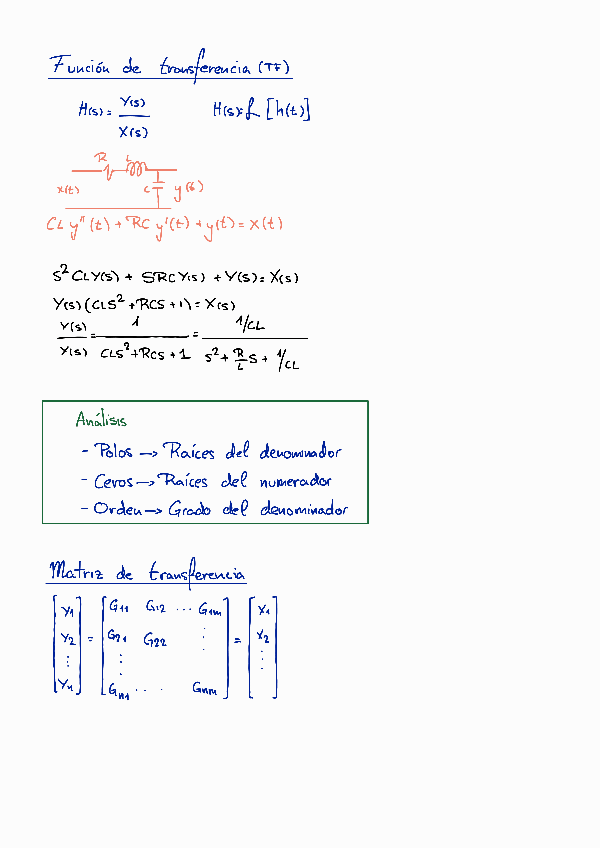 Función de transferencia (TF)
H(s) = Y(s) / X(s)    H(s) = ℒ [h(t)]
R L
x(t) C y(t)
CL y''(t) + RC y'(t) + y(t) = x(t)
s² CLY(s) + SRCY(s) + Y(s) = X(s)
Y(s) (CLS² + RCS + 1) = X(s)
Y(s) / X(s) = 1 / (CLS² + RCS + 1) = (1/CL) / (S² + R/L S + 1/CL)
Análisis
- Polos → Raíces del denominador
- Ceros → Raíces del numerador
- Orden → Grado del denominador
Matriz de transferencia
[Y1] = [G11 G12 ... G1m] = [X1]
[Y2] [G21 G22 ⋮] [X2]
[⋮] [⋮ ⋮] [⋮]
[Yn] [Gn1 ... Gnm]